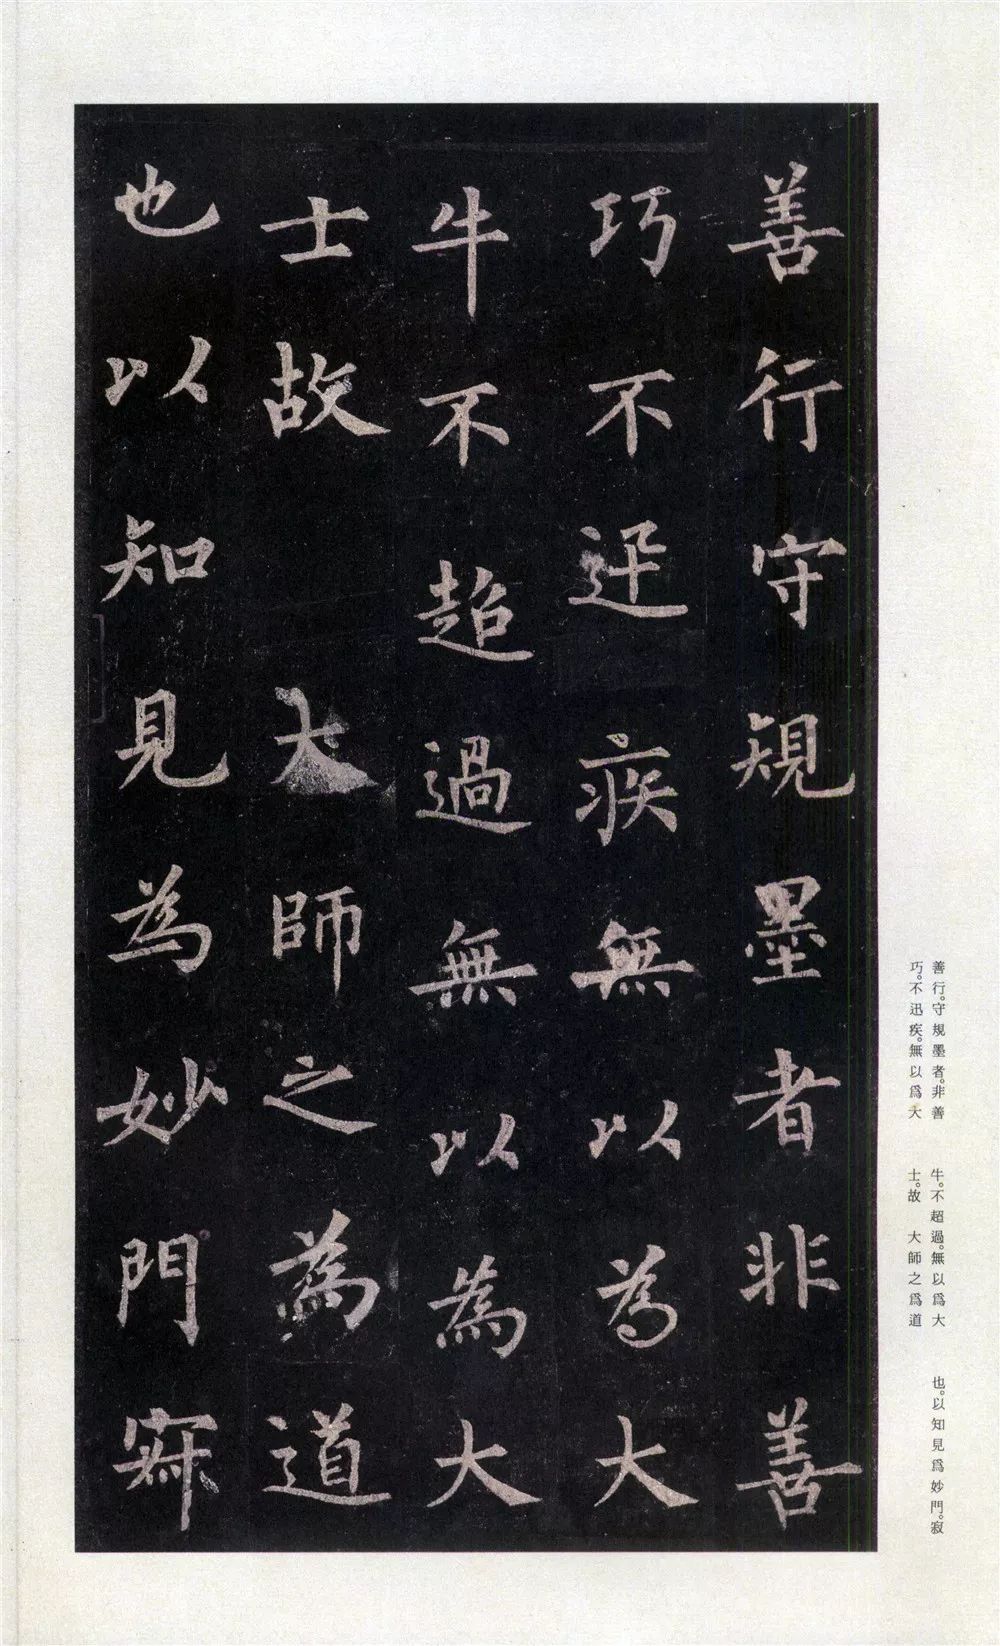 善行守規墨者非善
巧不迅疾無以為大
牛不超過無以為大
士故 大師之為道
也以知見為妙門寂
善行。守規墨者。非善
巧。不迅疾。無以爲大
牛。不超過。無以爲大
士。故 大師之爲道
也。以知見爲妙門。寂